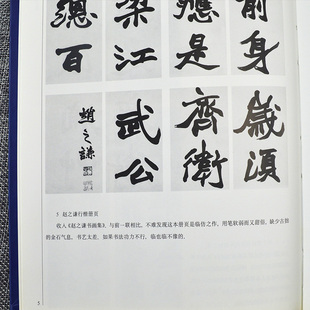 前身
應是
梁江
總百
歲須
齊衛
武公
趙之謙
3 赵之谦行楷册页
收入《赵之谦书画集》，与前一联相比，不难发现这本册页是临仿之作，用笔软弱而又甜俗，缺少古拙
的金石气息，书艺太差，如果书法功力不行，临也临不像的。